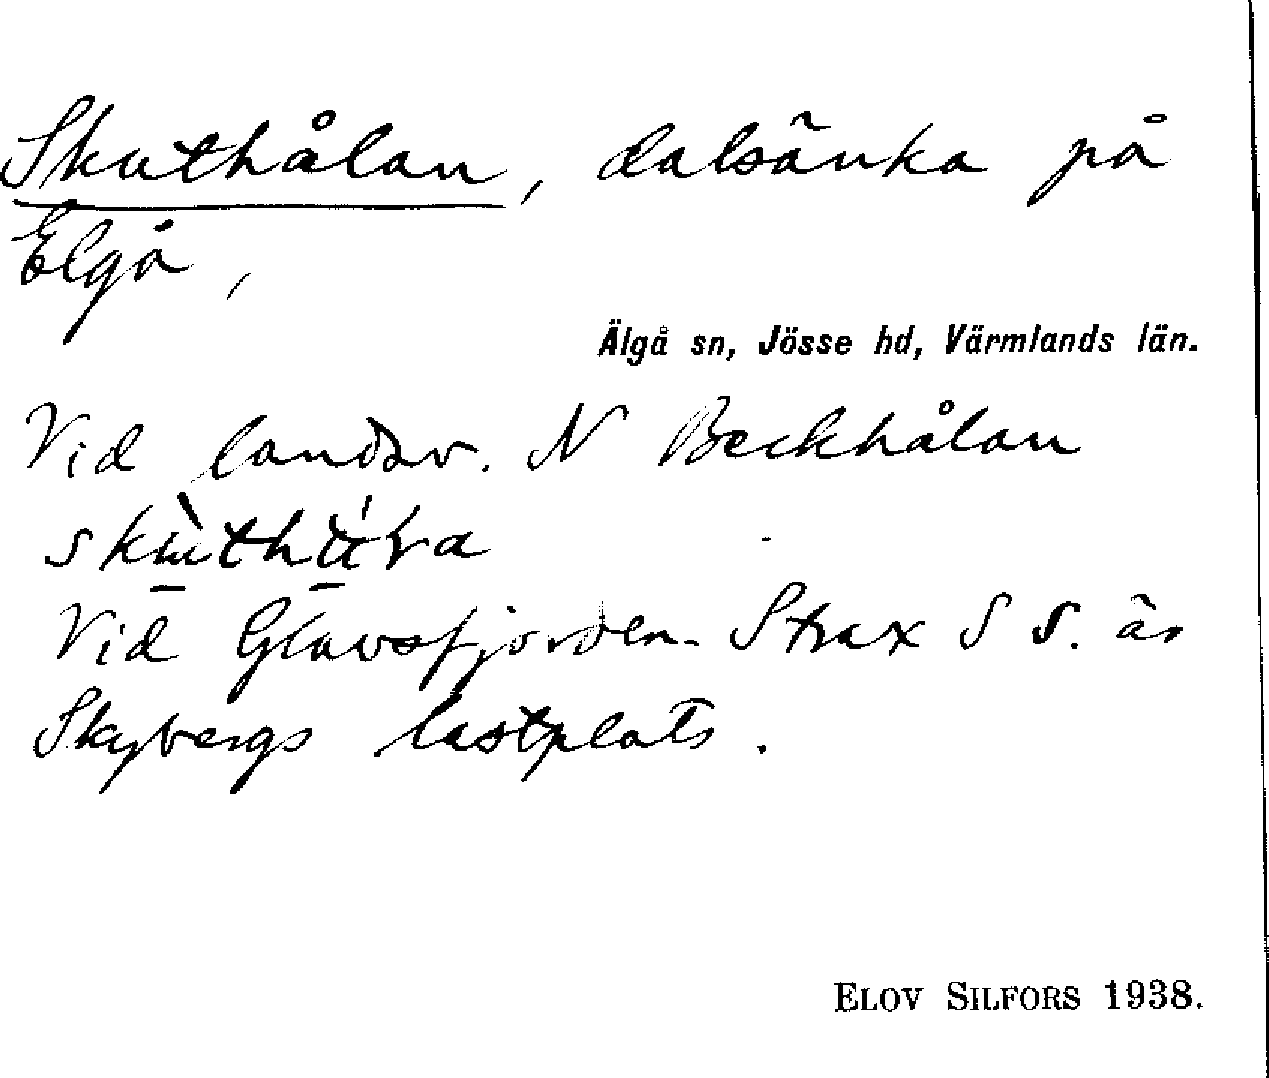 Skuthålan, dalsänka på
Elgå,
Älgå sn, Jösse hd, Värmlands län.
Vid landsv. N Beckhålan
Vid Glavsfjorden. Strax S S. är
Skybergs lastplats.
ELOV SILFORS 1938.